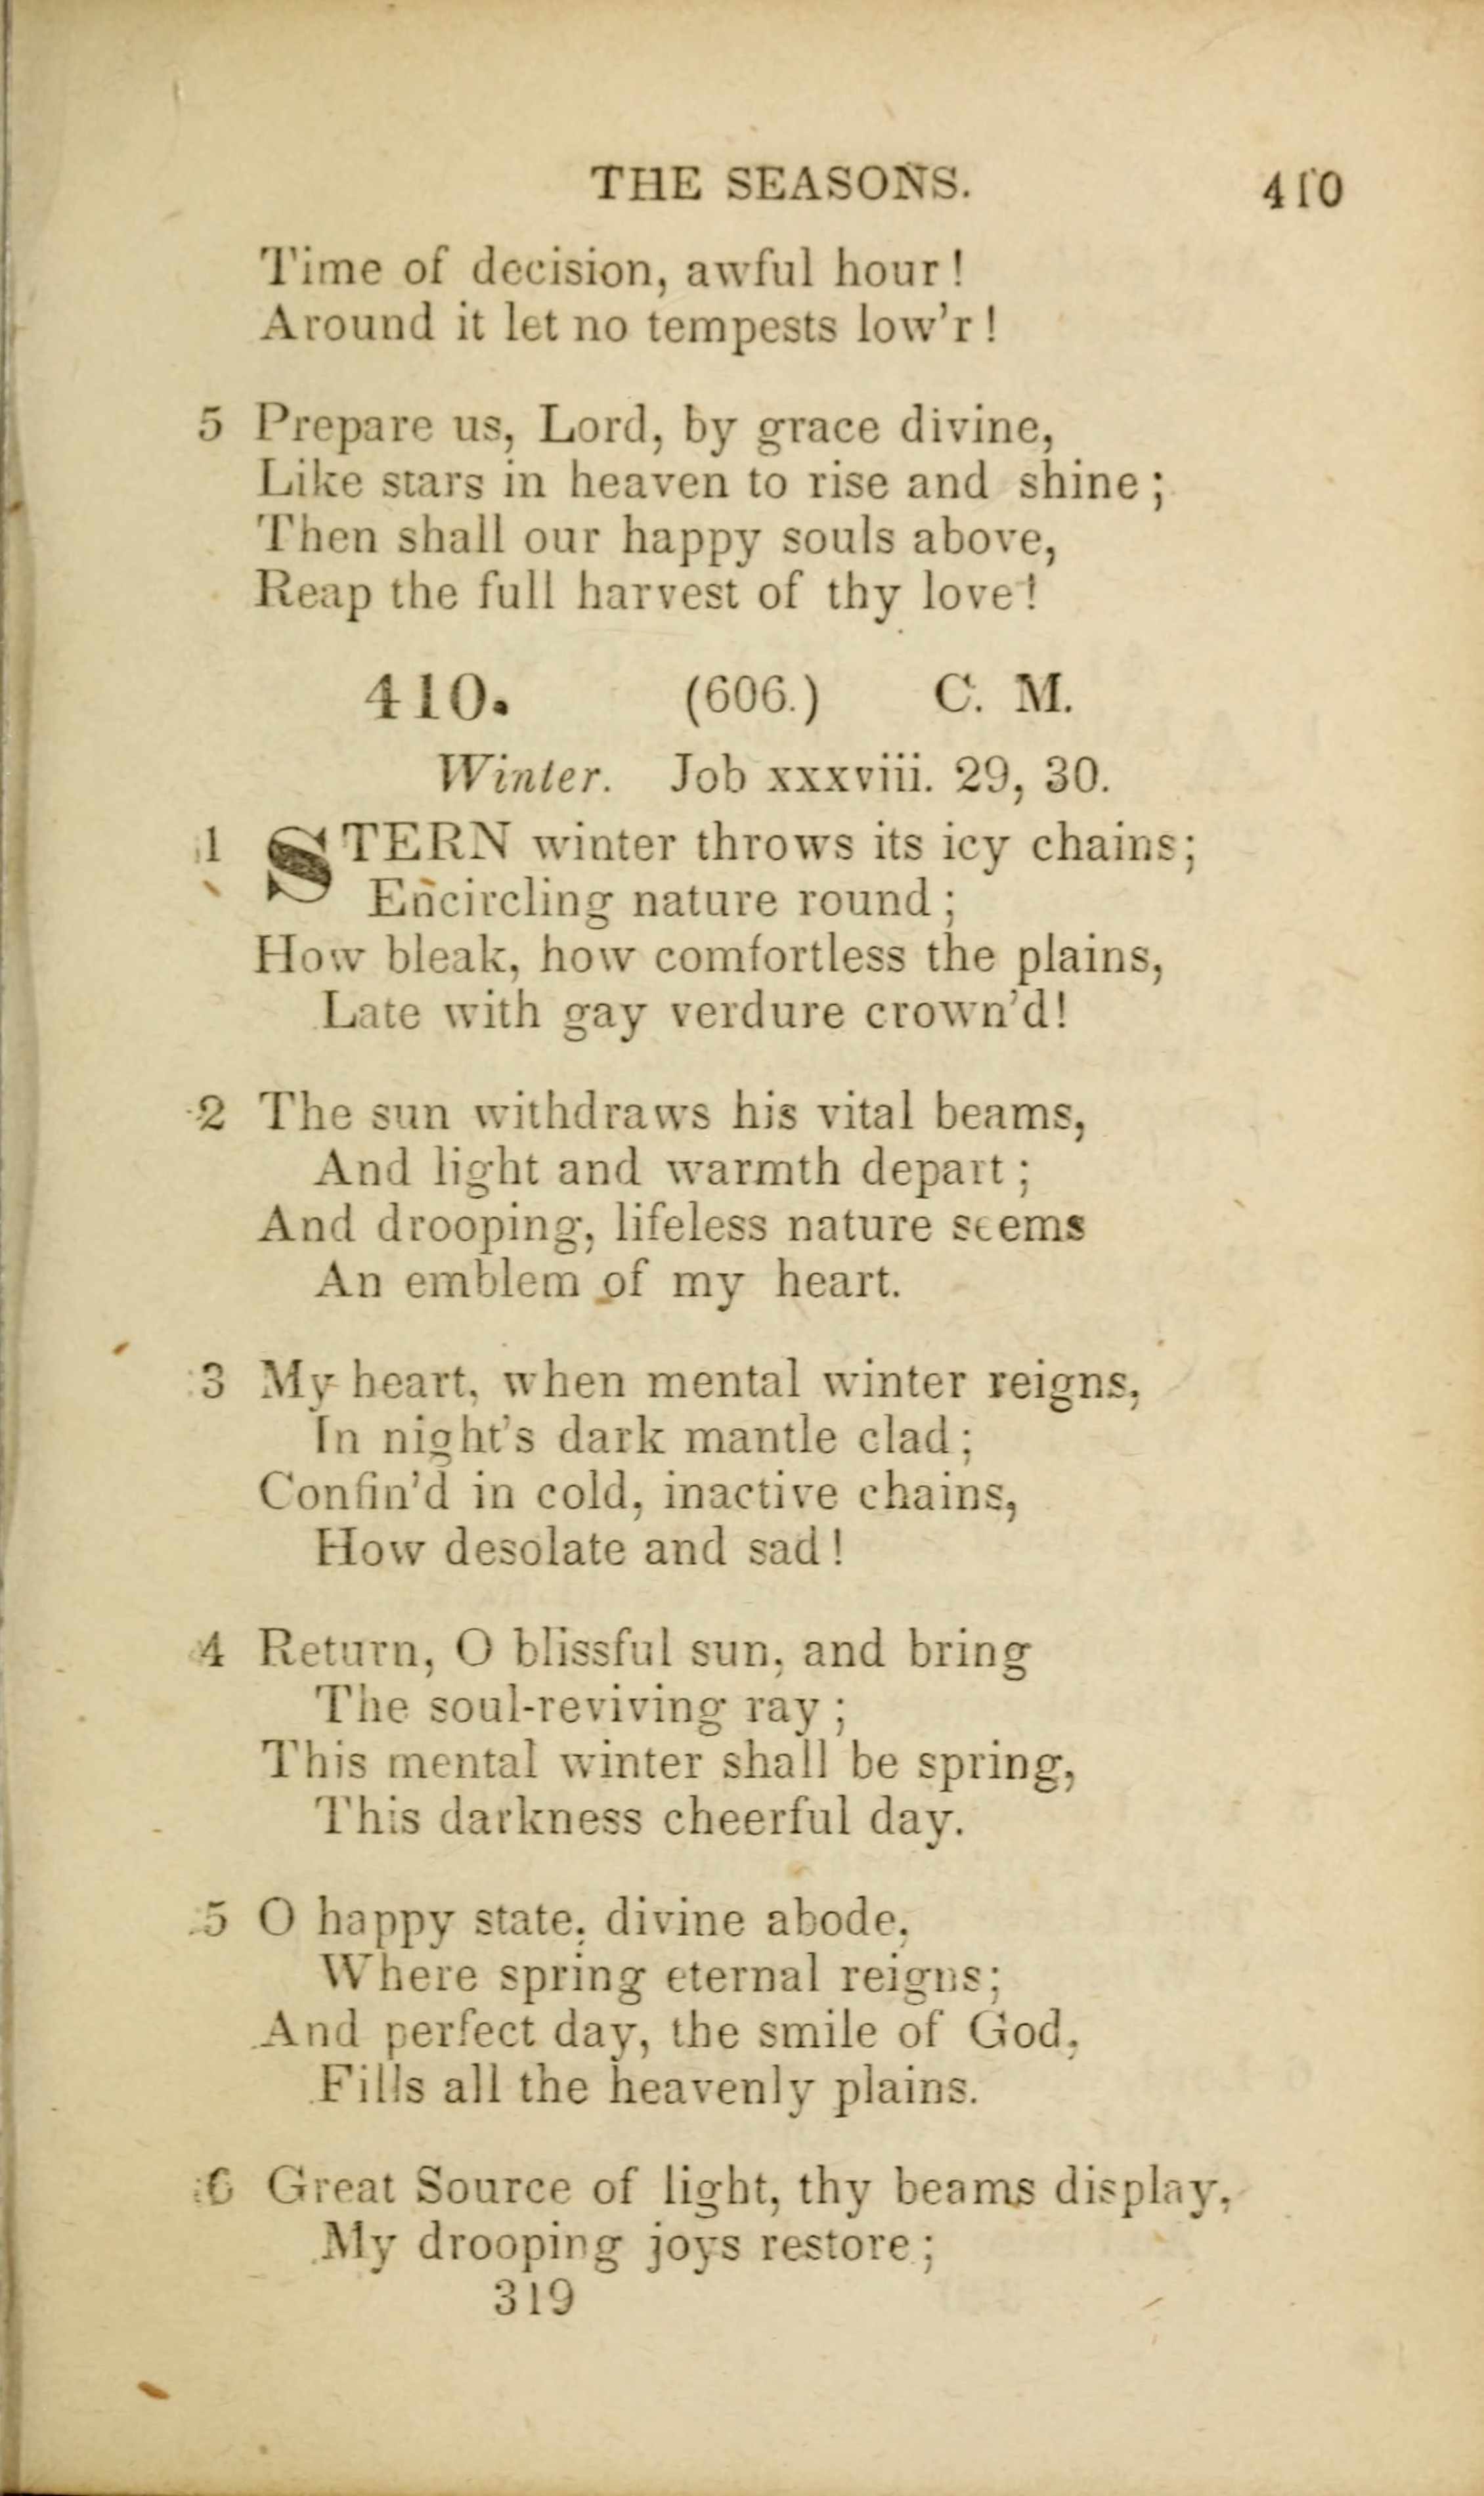 THE SEASONS. 410
Time of decision, awful hour!
Around it let no tempests low'r!
5 Prepare us, Lord, by grace divine,
Like stars in heaven to rise and shine;
Then shall our happy souls above,
Reap the full harvest of thy love!
410. (606.) C. M.
Winter. Job xxxviii. 29, 30.
1 STERN winter throws its icy chains;
Encircling nature round;
How bleak, how comfortless the plains,
Late with gay verdure crown'd!
2 The sun withdraws his vital beams,
And light and warmth depart;
And drooping, lifeless nature seems
An emblem of my heart.
3 My heart, when mental winter reigns,
In night's dark mantle clad;
Confin'd in cold, inactive chains,
How desolate and sad!
4 Return, O blissful sun, and bring
The soul-reviving ray;
This mental winter shall be spring,
This darkness cheerful day.
5 O happy state, divine abode,
Where spring eternal reigns;
And perfect day, the smile of God,
Fills all the heavenly plains.
6 Great Source of light, thy beams display,
My drooping joys restore;
319